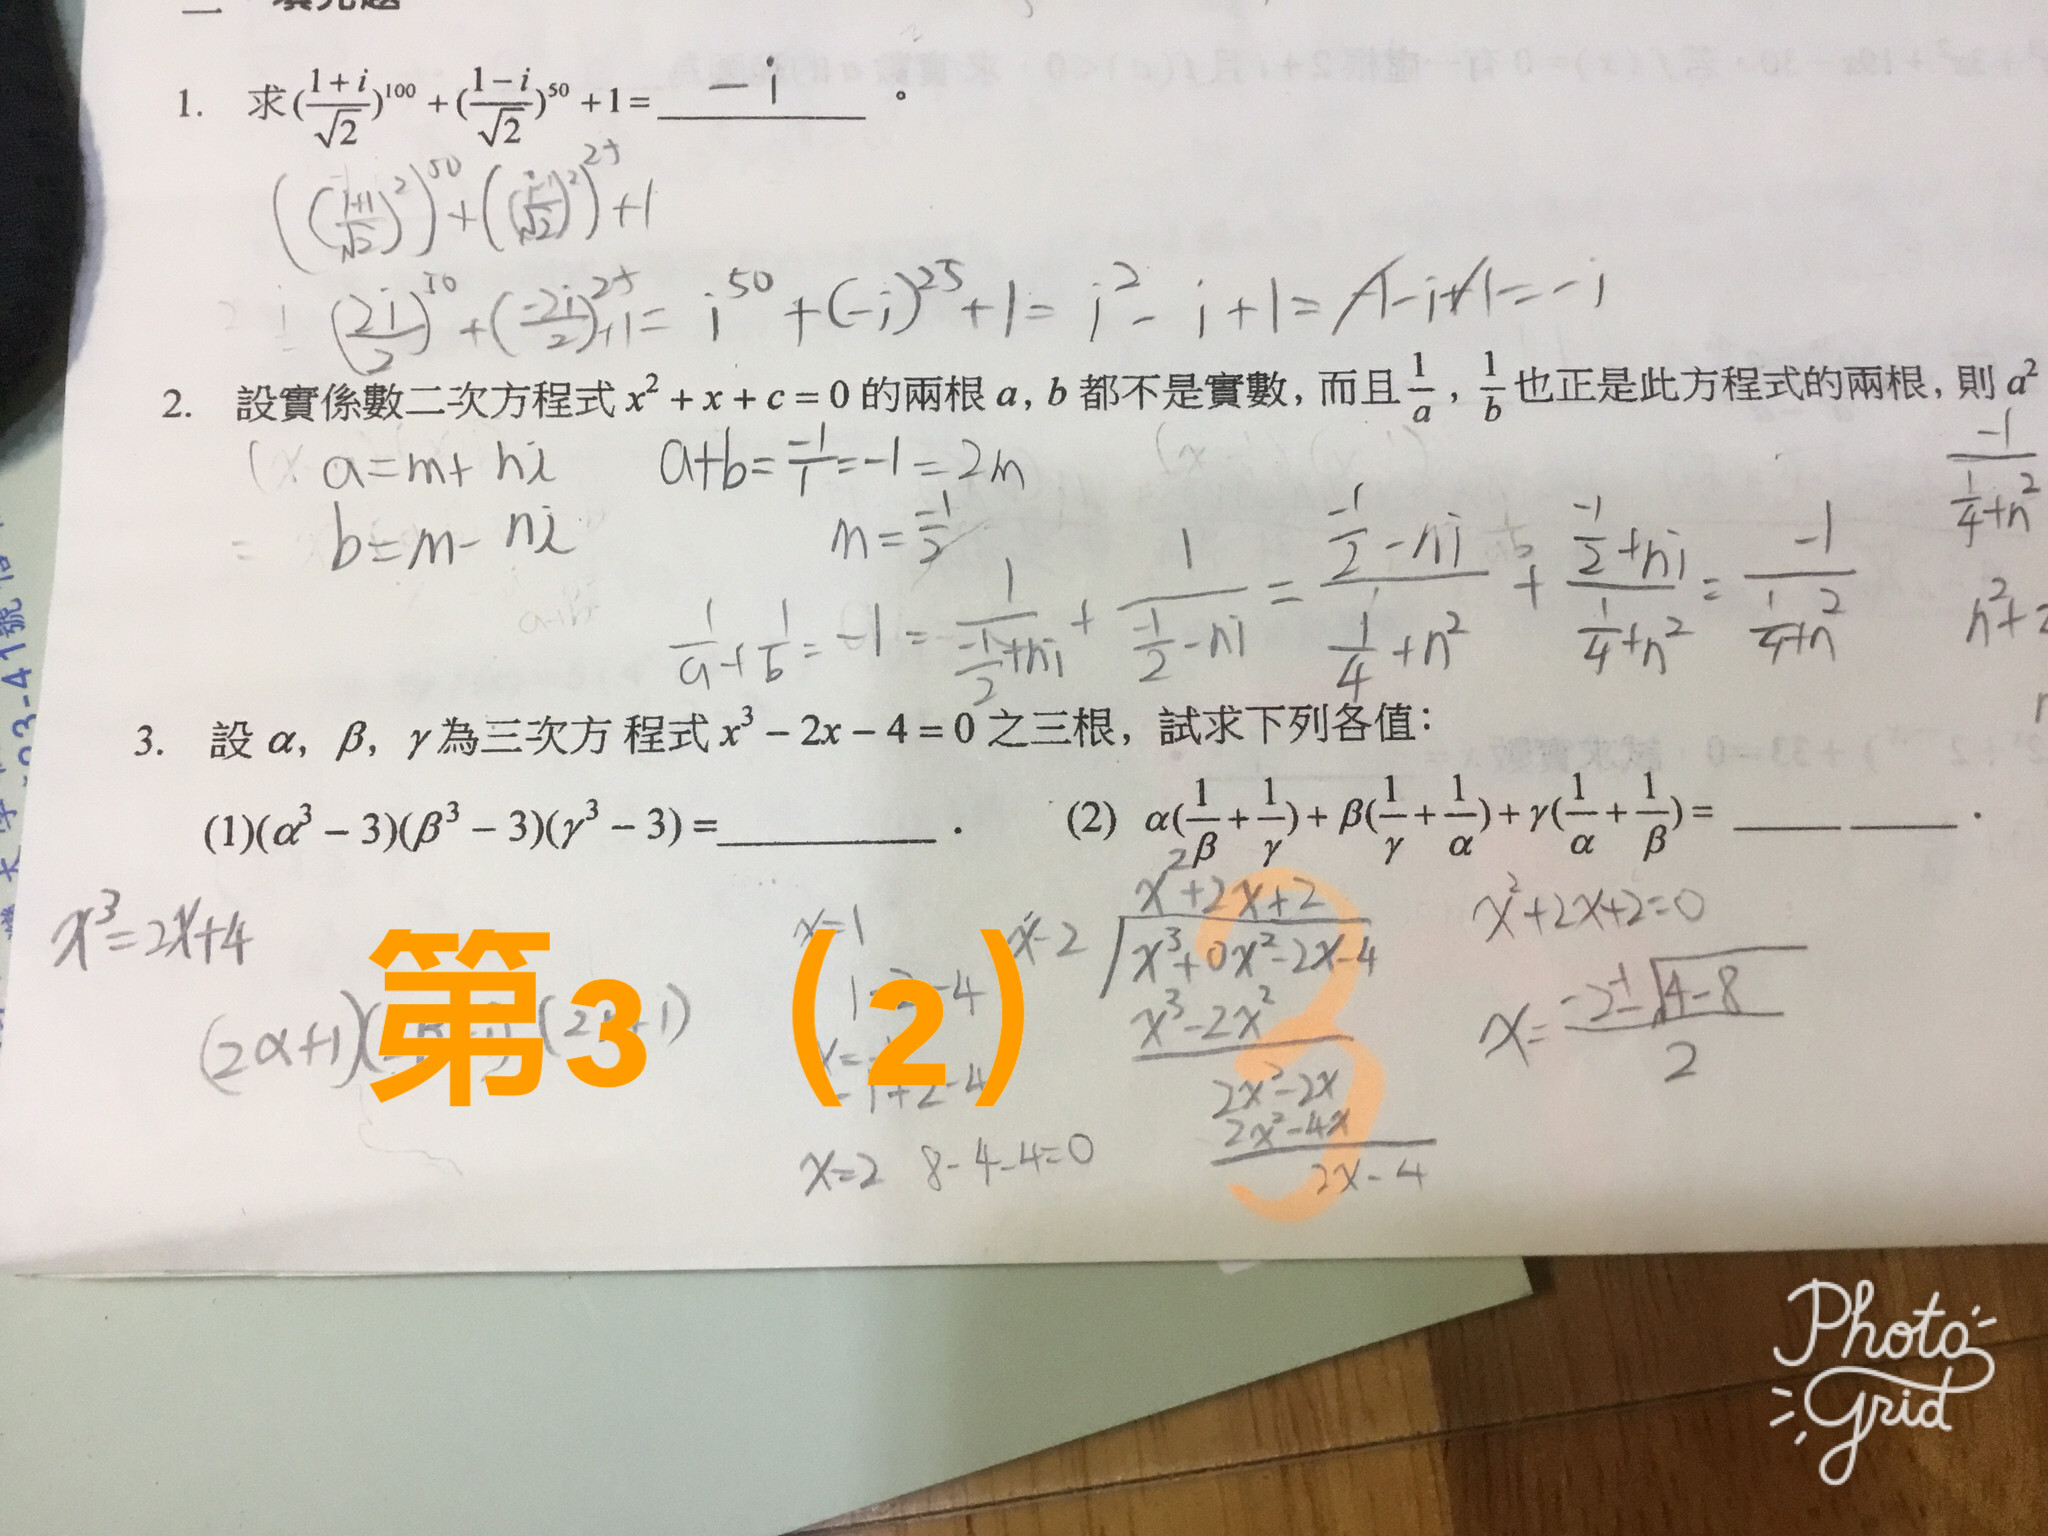 二 填充題
1. 求(\frac{1+i}{\sqrt{2}})^{100} + (\frac{1-i}{\sqrt{2}})^{50} + 1 = -i 。
((\frac{1+i}{\sqrt{2}})^2)^{50} + ((\frac{i-1}{\sqrt{2}})^2)^{25} + 1
(\frac{2i}{2})^{50} + (\frac{-2i}{2})^{25} + 1 = i^{50} + (-i)^{25} + 1 = i^2 - i + 1 = -1 - i + 1 = -i
2. 設實係數二次方程式 x^2 + x + c = 0 的兩根 a, b 都不是實數, 而且 \frac{1}{a}, \frac{1}{b} 也正是此方程式的兩根, 則 a^2
a = m + ni a + b = \frac{-1}{1} = -1 = 2m \frac{-1}{\frac{1}{4}+n^2}
b = m - ni m = \frac{-1}{2}
\frac{1}{a} + \frac{1}{b} = -1 = \frac{1}{\frac{-1}{2}+ni} + \frac{1}{\frac{-1}{2}-ni} = \frac{\frac{-1}{2}-ni}{\frac{1}{4}+n^2} + \frac{\frac{-1}{2}+ni}{\frac{1}{4}+n^2} = \frac{-1}{\frac{1}{4}+n^2} n^2+
3. 設 α, β, γ 為三次方 程式 x^3 - 2x - 4 = 0 之三根, 試求下列各值:
(1)(α^3 - 3)(β^3 - 3)(γ^3 - 3) = ________ . (2) α(\frac{1}{β} + \frac{1}{γ}) + β(\frac{1}{γ} + \frac{1}{α}) + γ(\frac{1}{α} + \frac{1}{β}) = ____ ____ .
x^3 = 2x + 4
(2α+1)
x = 1
x = 2 8 - 4 - 4 = 0
x^2 + 2x + 2
x - 2 x^3 + 0x^2 - 2x - 4
x^3 - 2x^2
2x^2 - 2x
2x^2 - 4x
2x - 4
x^2 + 2x + 2 = 0
x = \frac{-2 ± \sqrt{4-8}}{2}
第3（2）
3
Photo
Grid